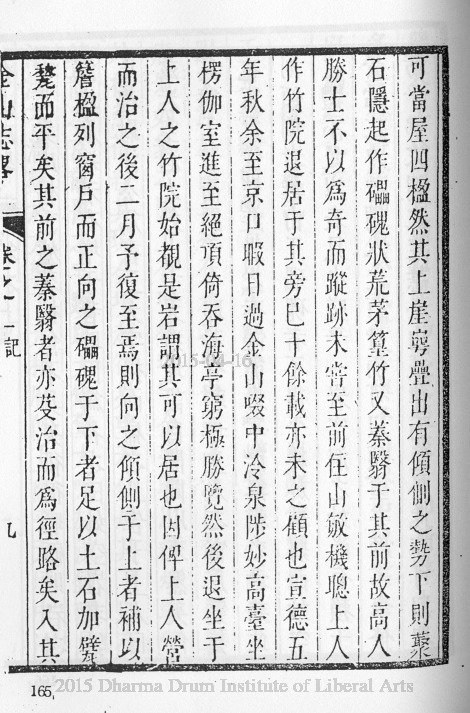 可當屋四楹然其上崖崿疊出有傾側之勢下則藂
石隱起作礧磈狀荒茅篁竹又蓁翳于其前故高人
勝士不以爲奇而蹤跡未嘗至前住山敏機聰上人
作竹院退居于其旁巳十餘載亦未之顧也宣德五
年秋余至京口暇日過金山啜中泠泉陟妙高臺坐
楞伽室進至絕頂倚吞海亭窮極勝覽然後退坐于
上人之竹院始覩是岩謂其可以居也因俾上人營
而治之後二月予復至焉則向之傾側于上者補以
簷楹列窗戶而正向之礧磈于下者足以土石加甓
甃而平矣其前之蓁翳者亦芟治而爲徑路矣入其
金山志畧 卷之一 記 九
165
2015-04-16
2015 Dharma Drum Institute of Liberal Arts